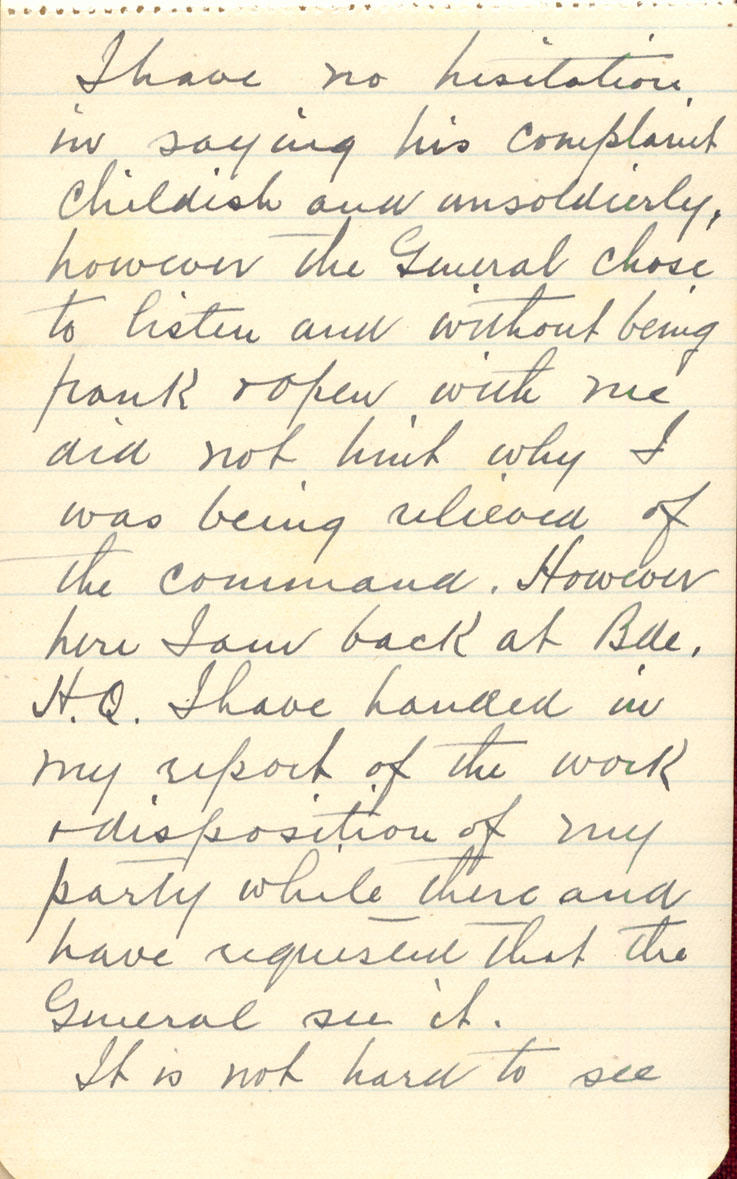 I have no hesitation
in saying his complaint
childish and unsoldierly,
however the General chose
to listen and without being
frank & open with me
did not hint why I
was being relieved of
the command. However
here I am back at Bde.
H.Q. I have handed in
my report of the work
& disposition of my
party while there and
have requested that the
General see it.
It is not hard to see